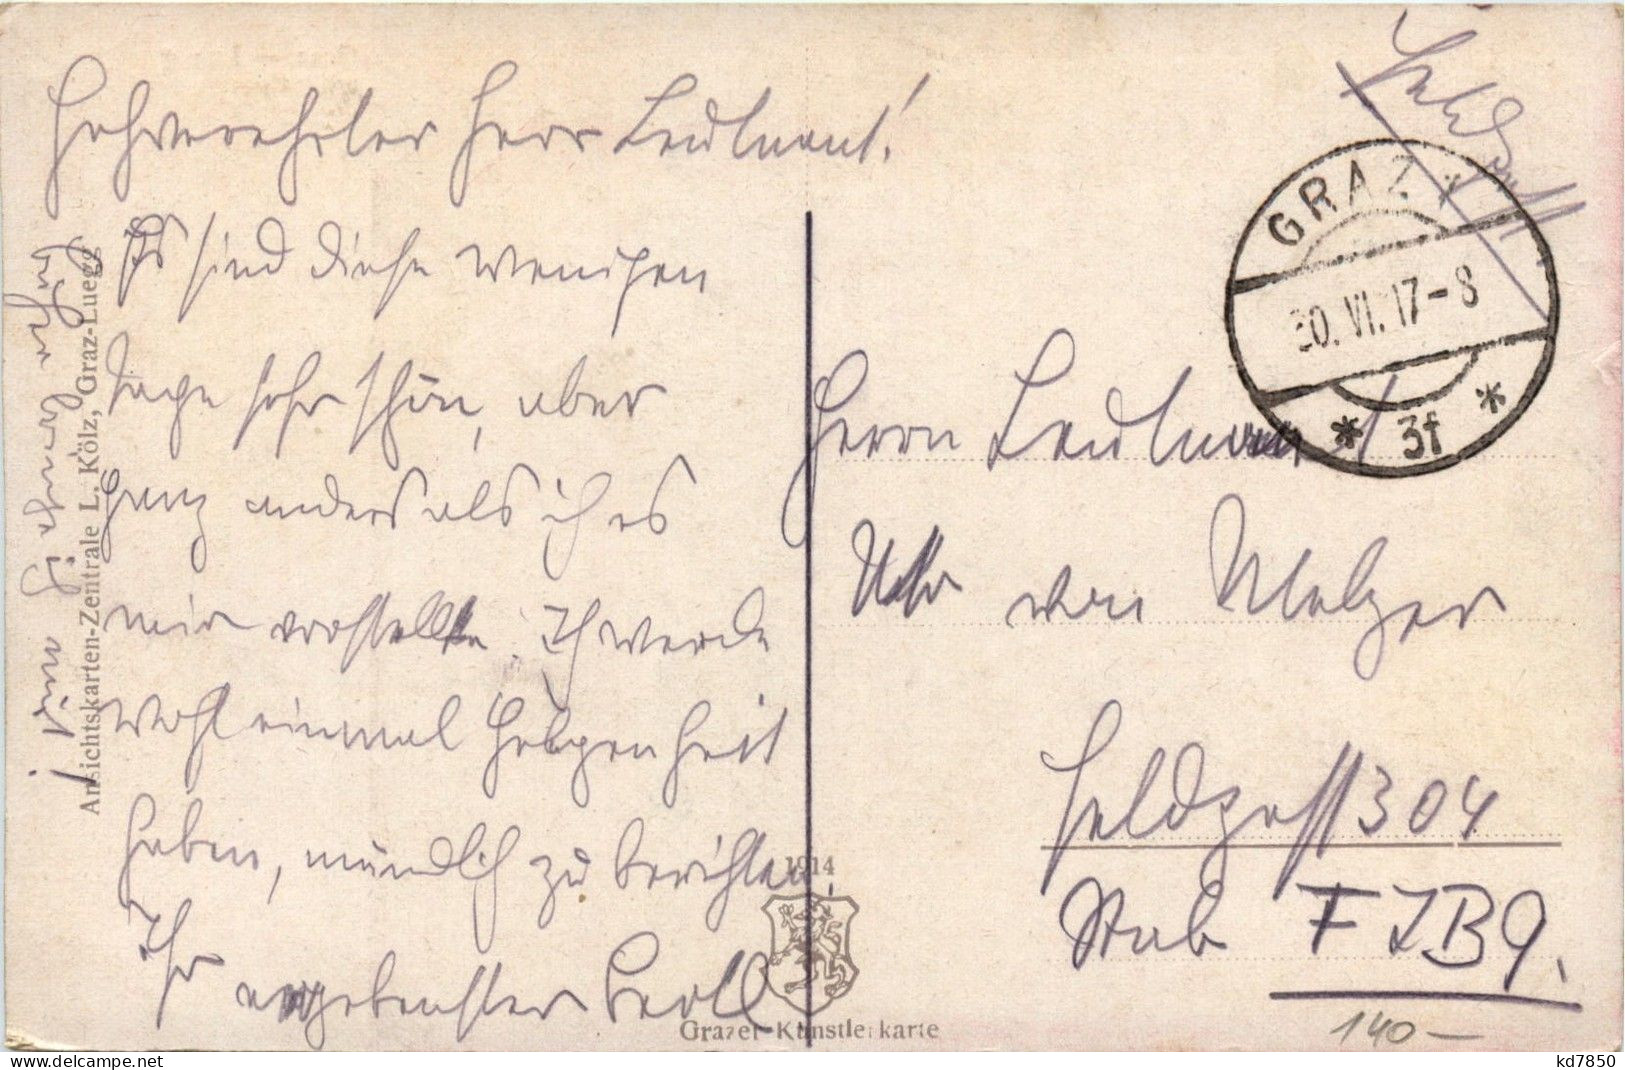 Hochverehrter Herr Leutnant!
Es sind diese wenigen
Tage sehr schön, aber
ganz anders als ich es
mir vorstellte. Ich werde
wohl einmal Gelegenheit
haben, mündlich zu berichten.
Ihr
ergebenster
Ansichtskarten-Zentrale L. Kölz, Graz-Luegg
Feldpost
GRAZ 1
30. VI. 17-8
* 3f *
Herrn Leutnant
von Melzer
Feldpost 304
Stab FJB9.
140-
1914
Grazer-Künstlerkarte
www.delcampe.net
kd7850